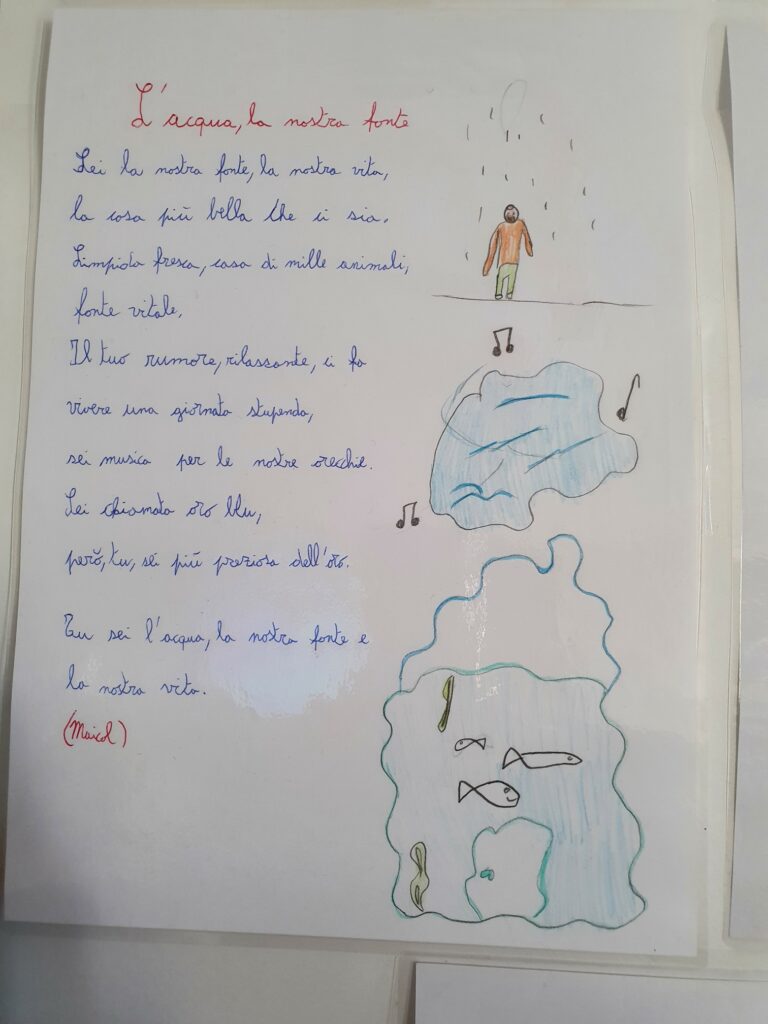 L'acqua, la nostra fonte
Lei la nostra fonte, la nostra vita,
la cosa più bella che ci sia.
Limpida fresca, casa di mille animali,
fonte vitale.
Il tuo rumore, rilassante, ci fa
vivere una giornata stupenda,
sei musica per le nostre orecchie.
Lei chiamata oro blu,
però, tu, sei più preziosa dell'oro.
Tu sei l'acqua, la nostra fonte e
la nostra vita.
(Maicol)